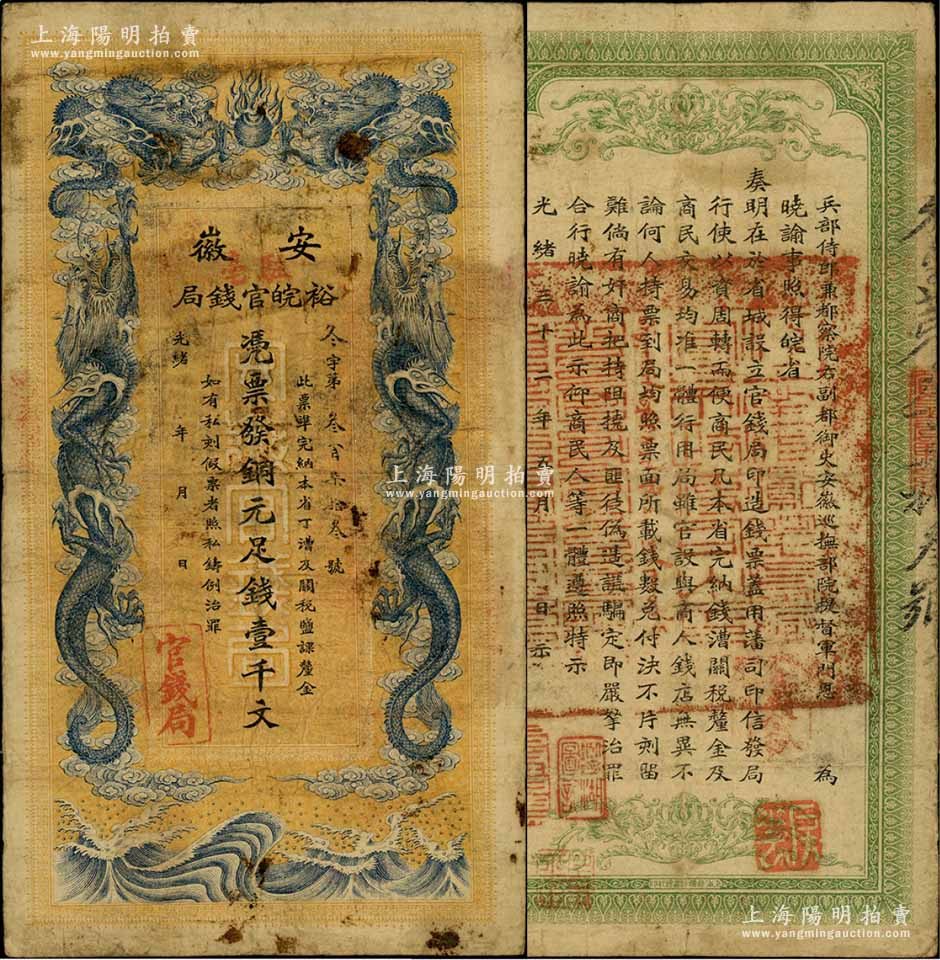 上海陽明拍賣
www.yangmingauction.com
安徽
裕皖官錢局
冬字第叁百柒拾叁號
此票準完納本省丁漕及關稅鹽課釐金
憑票發銅元足錢壹千文
如有私刻假票者照私鑄例治罪
光緒 年 月 日
官錢局
上海陽明拍賣
www.yangmingauction.com
上海陽明拍賣
www.yangmingauction.com
兵部侍郎兼都察院右副都御史安徽巡撫部院提督軍門恩 為
曉諭事照得皖省
奏明在於省城設立官錢局印造錢票蓋用藩司印信發局
行使以資周轉而便商民凡本省完納錢漕關稅釐金及
商民交易均准一體行用局雖官設與商人錢店無異不
論何人持票到局均照票面所載錢數兌付決不片刻留
難倘有奸商把持阻撓及匪徒偽造誆騙定即嚴拏治罪
合行曉諭為此示仰商民人等一體遵照特示
光緒三十二年 五月 日示